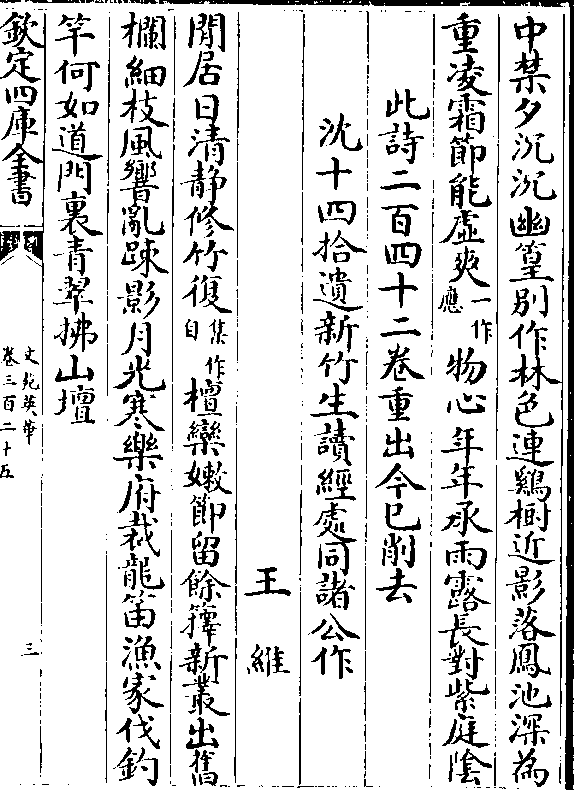 中禁夕沉沉幽篁別作林色連鷄樹近影落鳳池深為
重凌霜節能虛爽一作應物心年年承雨露長對紫庭陰
此詩二百四十二卷重出今已削去
沈十四拾遺新竹生讀經處同諸公作
王維
閒居日清静修竹復集作自檀欒嫩節留餘籜新叢出舊
欄細枝風響亂踈影月光寒樂府裁龍笛漁家伐釣
竿何如道門裏青翠拂山壇
欽定四庫全書
文苑英華
卷三百二十五
三